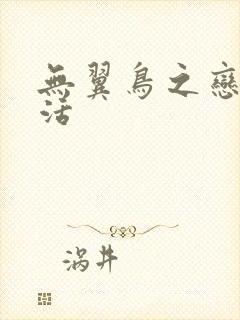 無翼鳥之戀
活
涡井